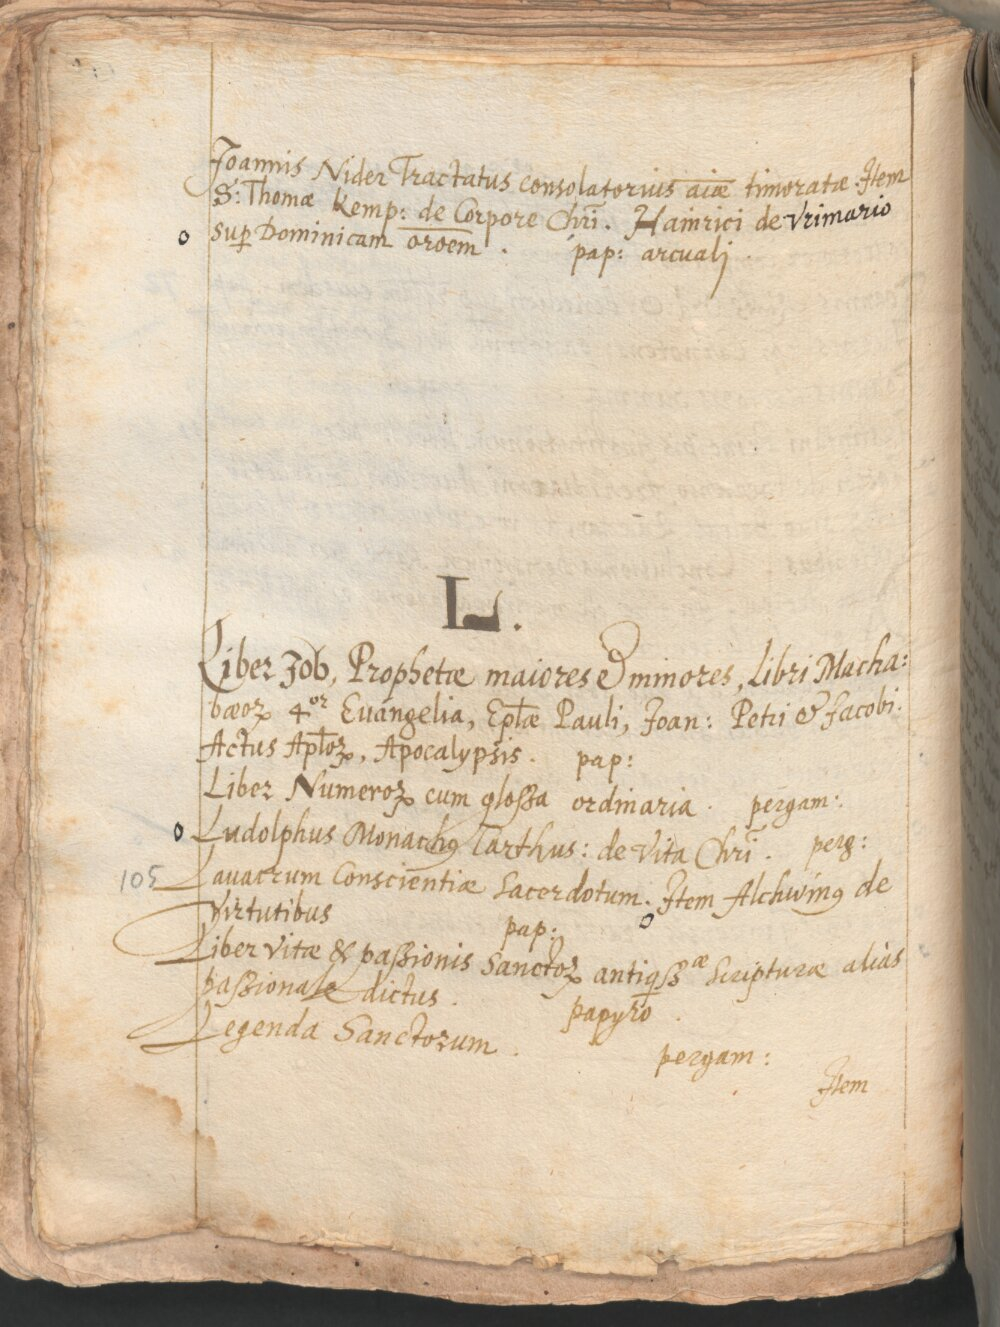 Joannis Nider Tractatus consolatorius aiæ timoratæ. Item
S: Thomæ Kemp: de Corpore Chri. Hainrici de Vrimario
o sup Dominicam oroem. pap: arcualj
L.
Liber Job, Prophetæ maiores & minores, Libri Macha:
bæoꝝ 4or Euangelia, Eplæ Pauli, Joan: Petri & Jacobi.
Actus Aploꝝ, Apocalypsis. pap:
Liber Numeroꝝ cum glossa ordinaria. pergam:
o Ludolphus Monachꝰ Carthus: de Vita Chri. perg:
105 Lauacrum Conscientiæ Sacerdotum. Item Alchwinꝰ de
Virtutibus pap: o
Liber vitæ & passionis Sanctoꝝ antiqss æ Scripturæ alias
passionale dictus. papyro.
Legenda Sanctorum. pergam:
Item